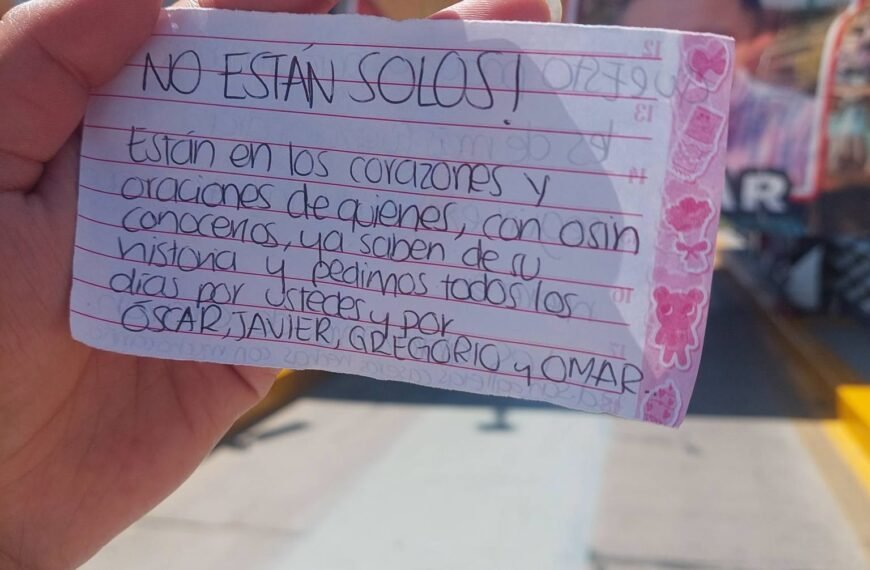 NO ESTÁN SOLOS!
Están en los corazones y
oraciones de quienes, con osin
conocerlos, ya saben de su
historia y pedimos todos los
días por ustedes y por
ÓSCAR, JAVIER, GREGORIO y OMAR.
12
13
14
16
17
AR